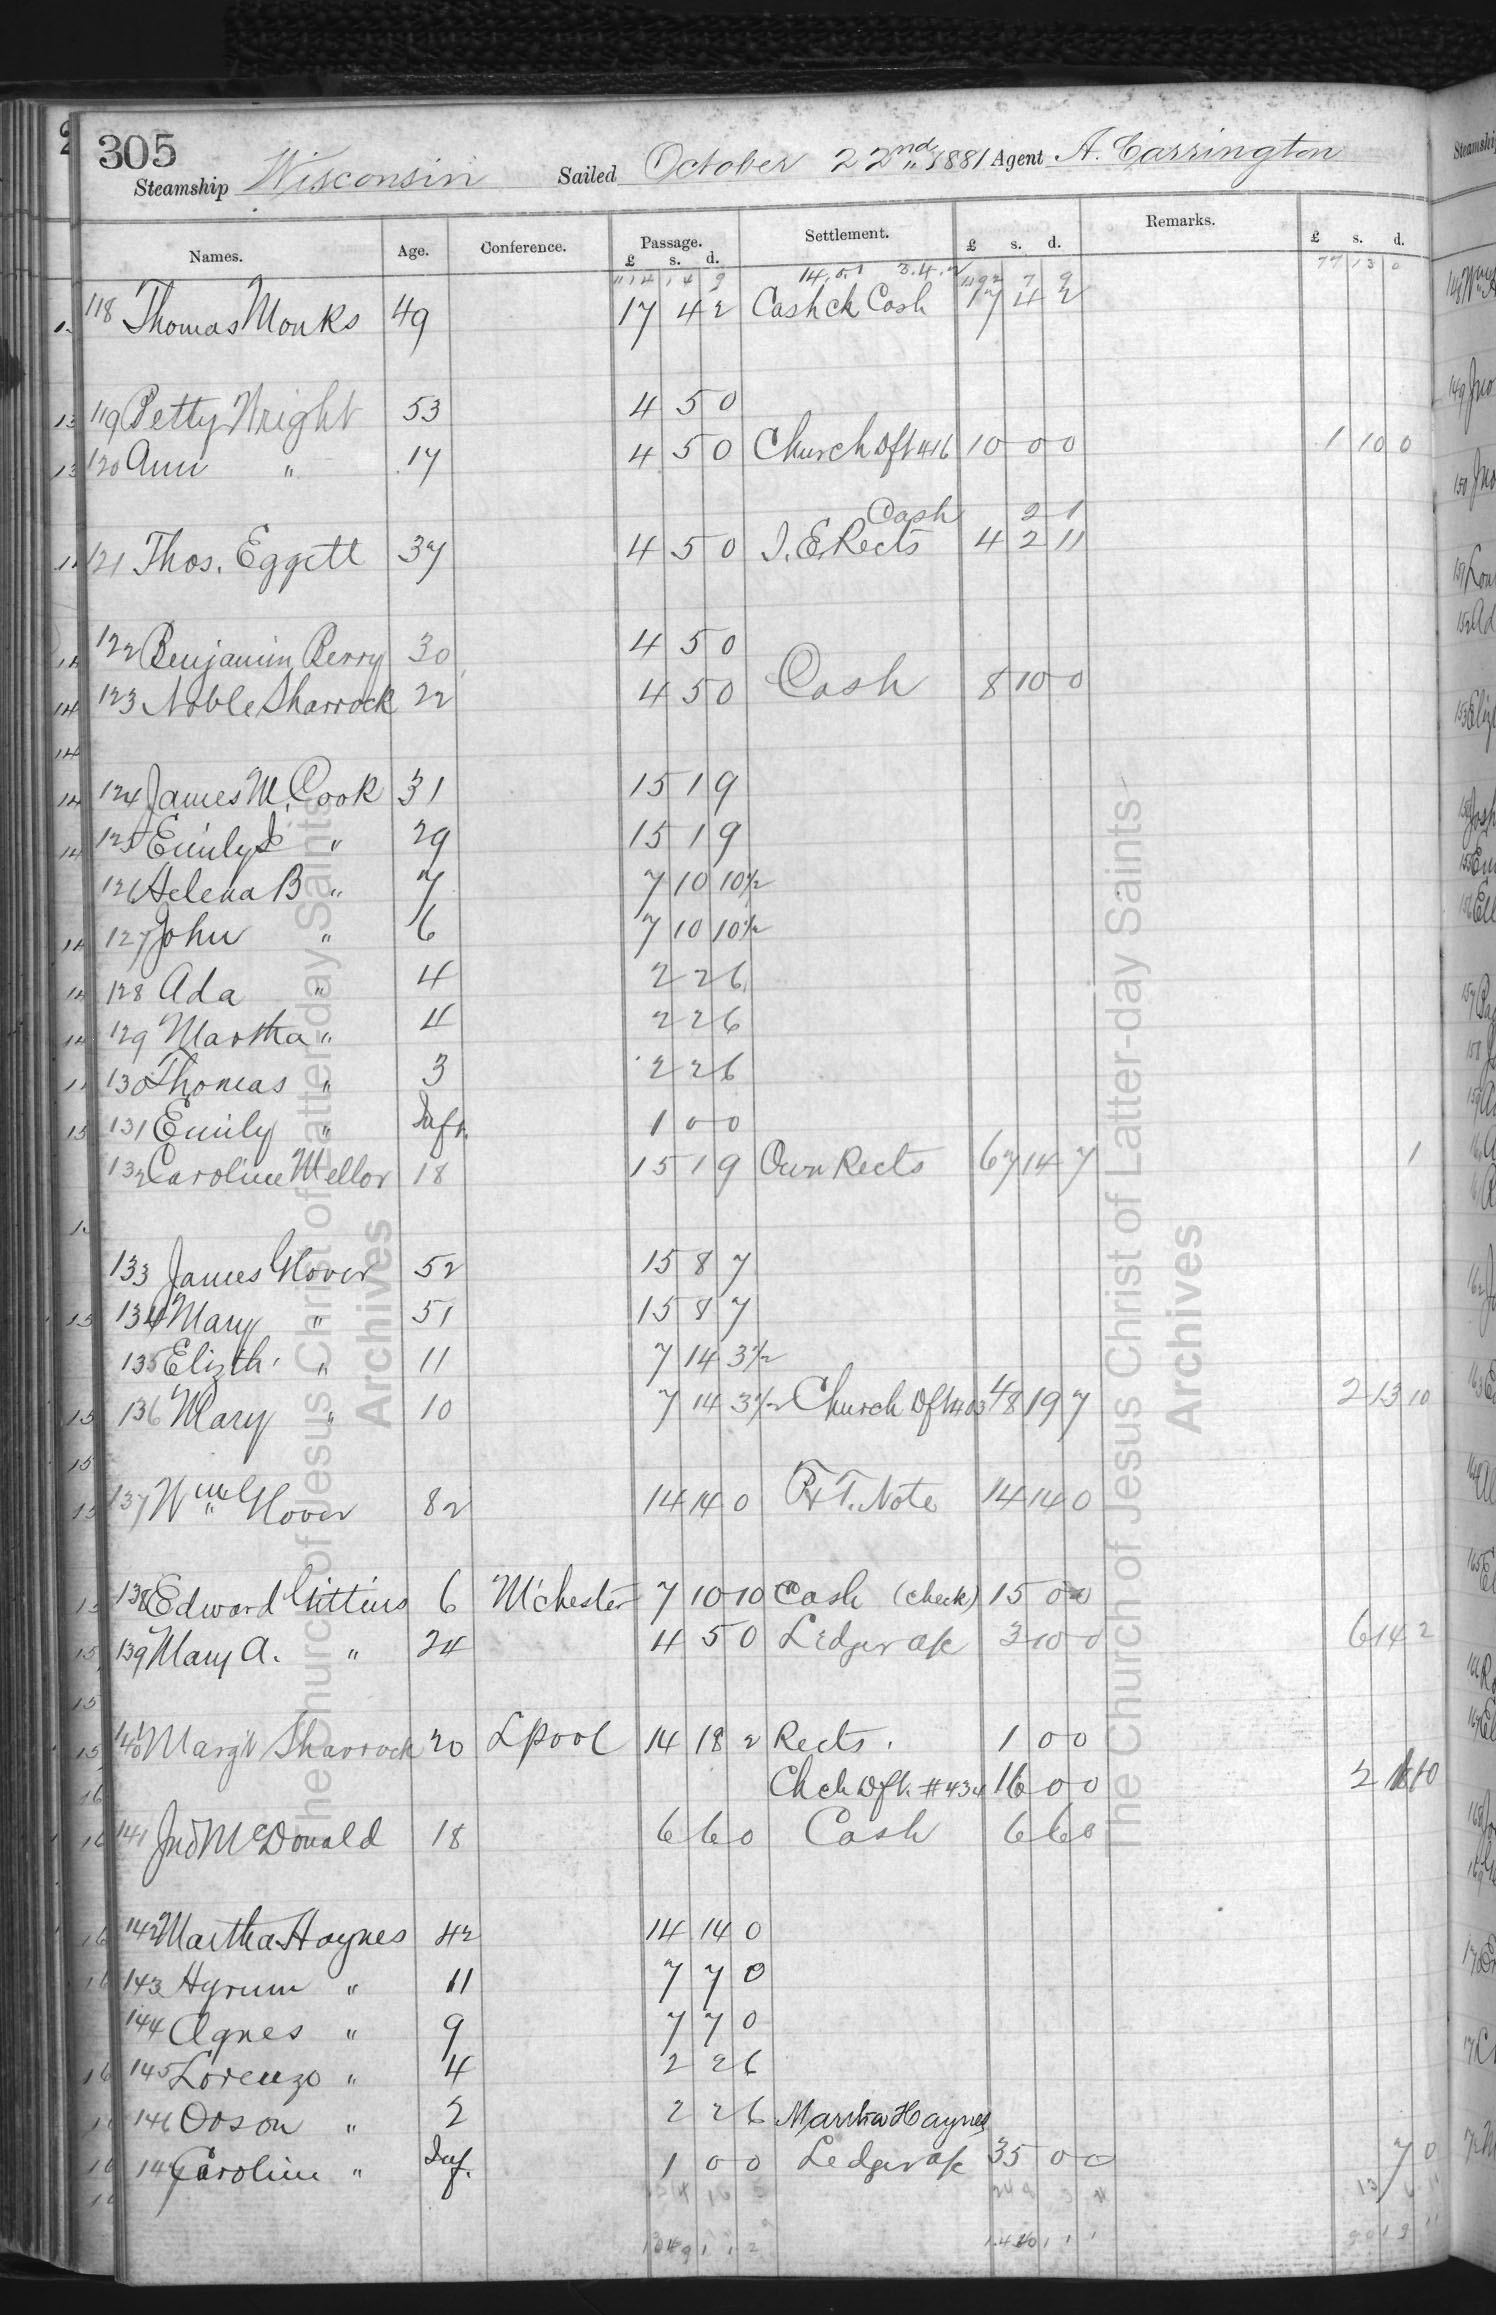 305
Steamship Wisconsin Sailed October 22nd 1881 Agent A. Carrington
Names. Age. Conference. Passage. £ s. d. Settlement. £ s. d. Remarks. £ s. d.
14.0.1 3.4.2 77 13 0
118 Thomas Monks 49 17 4 2 Cash ck Cash 17 4 2
119 Betty Wright 53 4 5 0
120 Ann " 17 4 5 0 Church Dft 416 10 0 0 1 10 0
Cash 2 1
121 Thos. Eggett 37 4 5 0 I. E. Rects 4 2 11
122 Benjamin Berry 30 4 5 0
123 Noble Sharrock 22 4 5 0 Cash 8 10 0
124 James M. Cook 31 15 1 9
125 Emily S " 29 15 1 9
126 Helena B " 7 7 10 10½
127 John " 6 7 10 10½
128 Ada " 4 2 2 6
129 Martha " 4 2 2 6
130 Thomas " 3 2 2 6
131 Emily " Inft. 1 0 0
132 Caroline Mellor 18 15 1 9 Own Rects 67 14 7 1
133 James Glover 52 15 8 7
134 Mary " 51 15 8 7
135 Elizth. " 11 7 14 3½
136 Mary " 10 7 14 3½ Church Dft 403 48 19 7 2 13 10
137 Wm Glover 82 14 14 0 P.T. Note 14 14 0
138 Edward Gittins 6 M'chester 7 10 10 Cash (check) 15 0 0
139 Mary A. " 24 4 5 0 Ledger a/c 3 10 0 6 14 2
140 Marg't Sharrock 20 Lpool 14 18 2 Rects. 1 0 0
Chch Dft. #434 16 0 0 2 1 10
141 Jno McDonald 18 6 6 0 Cash 6 6 0
142 Martha Haynes 42 14 14 0
143 Hyrum " 11 7 7 0
144 Agnes " 9 7 7 0
145 Lorenzo " 4 2 2 6
146 Orson " 2 2 2 6 Martha Haynes
147 Caroline " Inf. 1 0 0 Ledger a/c 35 0 0 7 0
The Church of Jesus Christ of Latter-day Saints
Archives
The Church of Jesus Christ of Latter-day Saints
Archives